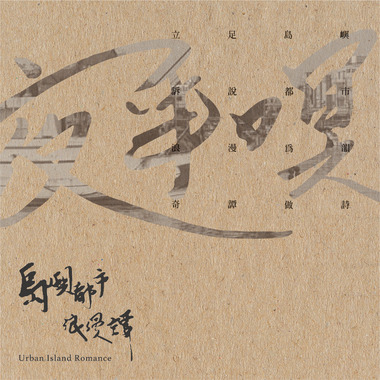 立足島嶼
訴說都市
浪漫爲韻
奇譚做詩
島嶼都市
浪漫譚
Urban Island Romance